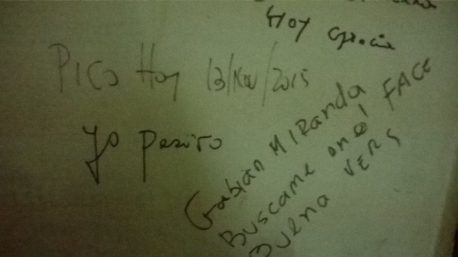 Hoy
Pico Hoy 13/Nov/2015
yo pasivo
Fabian Miranda
Buscame en el FACE
Buena VERG